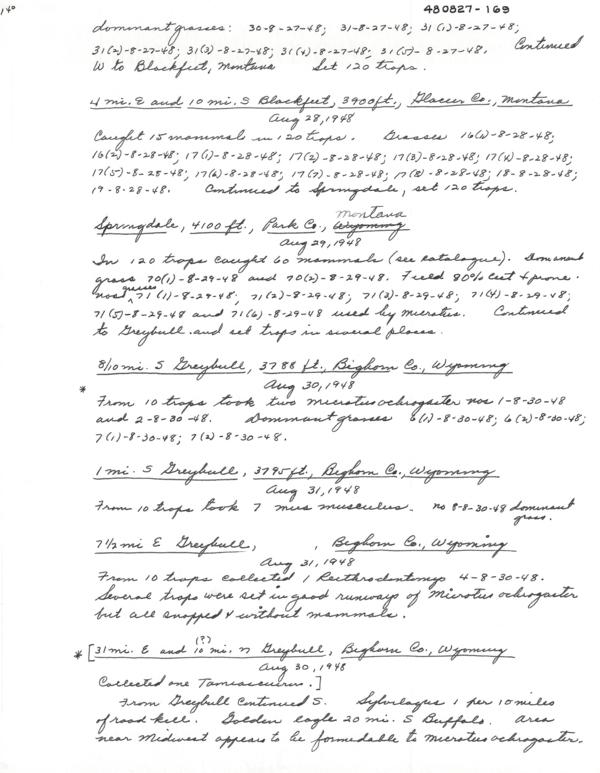 140
480827-169
dominant grasses: 30-8-27-48; 31-8-27-48; 31(1)-8-27-48;
31(2)-8-27-48; 31(3)-8-27-48; 31(4)-8-27-48; 31(5)-8-27-48. Continued
W to Blackfeet, Montana Set 120 traps.
4 mi. E and 10 mi. S Blackfeet, 3900 ft., Glacier Co., Montana
Aug 28, 1948
Caught 15 mammals in 120 traps. Grasses 16(6)-8-28-48;
16(2)-8-28-48; 17(1)-8-28-48; 17(2)-8-28-48; 17(3)-8-28-48; 17(4)-8-28-48;
17(5)-8-28-48; 17(6)-8-28-48; 17(7)-8-28-48; 17(8)-8-28-48; 18-8-28-48;
19-8-28-48. Continued to Springdale, set 120 traps.
Montana
Springdale, 4100 ft., Park Co., Wyoming
Aug 29, 1948
In 120 traps caught 60 mammals (see catalogue). Dominant
grass 70(1)-8-29-48 and 70(2)-8-29-48. Field 80% cut & prone.
grasses
nos 71(1)-8-29-48, 71(2)-8-29-48; 71(3)-8-29-48; 71(4)-8-29-48;
71(5)-8-29-48 and 71(6)-8-29-48 used by microtus. Continued
to Greybull and set traps in several places.
8/10 mi. S Greybull, 3788 ft., Bighorn Co., Wyoming
Aug 30, 1948
* From 10 traps took two microtus ochrogaster nos 1-8-30-48
and 2-8-30-48. Dominant grasses 6(1)-8-30-48; 6(2)-8-30-48;
7(1)-8-30-48; 7(2)-8-30-48.
1 mi. S Greybull, 3795 ft., Bighorn Co., Wyoming
Aug 31, 1948
From 10 traps took 7 mus musculus. no 8-8-30-48 dominant
grass.
7 1/2 mi E Greybull, , Bighorn Co., Wyoming
Aug 31, 1948
From 10 traps collected 1 Reithrodontomys 4-8-30-48.
Several traps were set in good runways of Microtus ochrogaster
but all snapped & without mammals.
(?)
* [31 mi. E and 10 mi. N Greybull, Bighorn Co., Wyoming
Aug 30, 1948
Collected one Tamiasciurus.]
From Greybull continued S. Sylvilagus 1 per 10 miles
of road kill. Golden eagle 20 mi. S Buffalo. Area
near Midwest appears to be formidable to microtus ochrogaster.